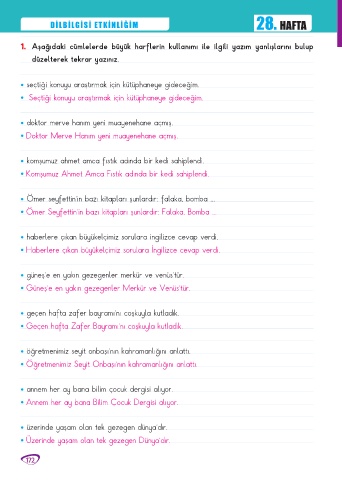 DİLBİLGİSİ ETKİNLİĞİM
28. HAFTA
1. Aşağıdaki cümlelerde büyük harflerin kullanımı ile ilgili yazım yanlışlarını bulup
düzelterek tekrar yazınız.
• seçtiği konuyu araştırmak için kütüphaneye gideceğim.
• Seçtiği konuyu araştırmak için kütüphaneye gideceğim.
• doktor merve hanım yeni muayenehane açmış.
• Doktor Merve Hanım yeni muayenehane açmış.
• komşumuz ahmet amca fıstık adında bir kedi sahiplendi.
• Komşumuz Ahmet Amca Fıstık adında bir kedi sahiplendi.
• Ömer seyfettin'in bazı kitapları şunlardır: falaka, bomba ...
• Ömer Seyfettin'in bazı kitapları şunlardır: Falaka, Bomba ...
• haberlere çıkan büyükelçimiz sorulara ingilizce cevap verdi.
• Haberlere çıkan büyükelçimiz sorulara İngilizce cevap verdi.
• güneş'e en yakın gezegenler merkür ve venüs'tür.
• Güneş'e en yakın gezegenler Merkür ve Venüs'tür.
• geçen hafta zafer bayramı'nı coşkuyla kutladık.
• Geçen hafta Zafer Bayramı'nı coşkuyla kutladık.
• öğretmenimiz seyit onbaşı'nın kahramanlığını anlattı.
• Öğretmenimiz Seyit Onbaşı'nın kahramanlığını anlattı.
• annem her ay bana bilim çocuk dergisi alıyor.
• Annem her ay bana Bilim Çocuk Dergisi alıyor.
• üzerinde yaşam olan tek gezegen dünya'dır.
• Üzerinde yaşam olan tek gezegen Dünya'dır.
172